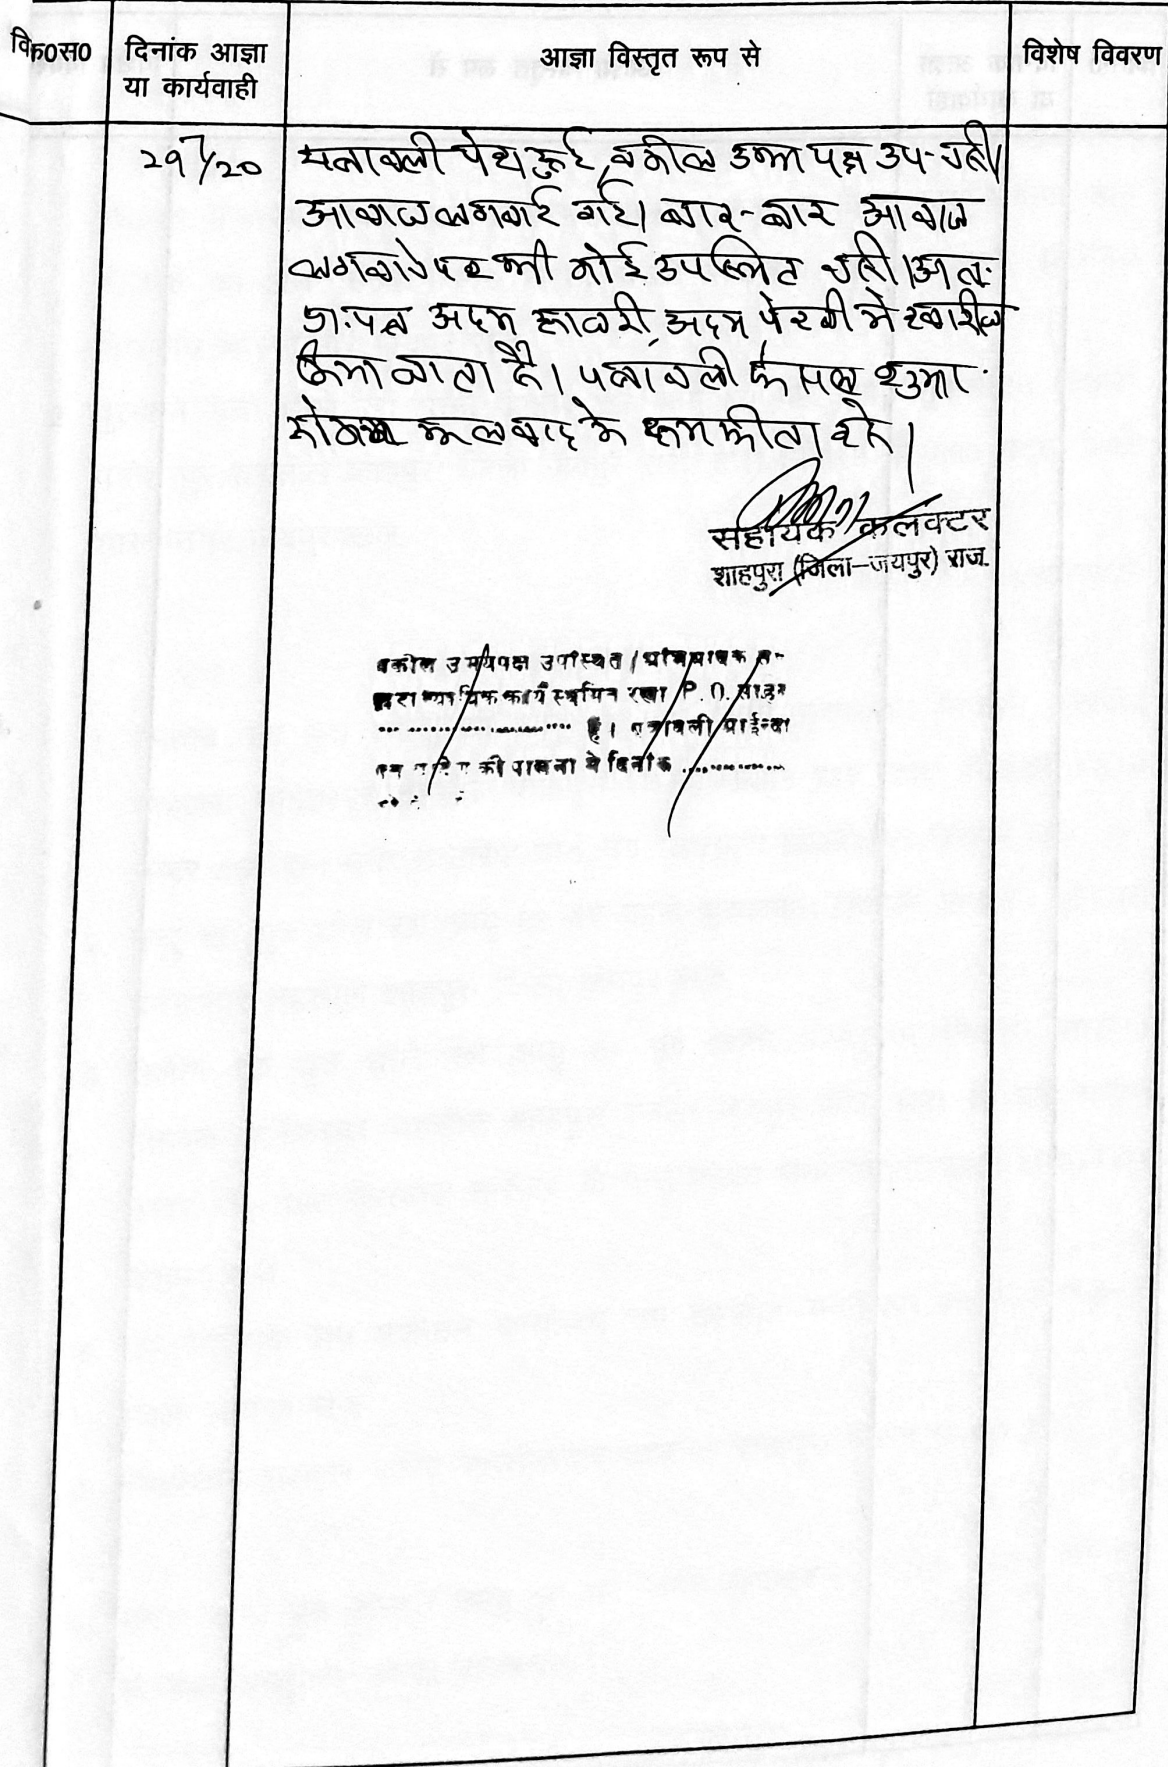 वि क्र0स0
दिनांक आज्ञा या कार्यवाही
आज्ञा विस्तृत रूप से
विशेष विवरण
29/7/20
पत्रावली पेश हुई, वकील उभय पक्ष उप- नहीं।
आवाज लगवाई गई। बार-बार आवाज
लगवाने पर भी कोई उपस्थित नहीं। अतः
प्रा.पत्र अदम हाजरी, अदम पैरवी में खारीज
किया जाता है। पत्रावली फैसल शुमार
होकर मूलवाद के हो।
सहायक कलक्टर
शाहपुरा (जिला-जयपुर) राज.
वकील उभयपक्ष उपस्थित।
न्यायिक कार्य स्थगित रखा P.O.
है। पत्रावली
की पालना में दिनांक